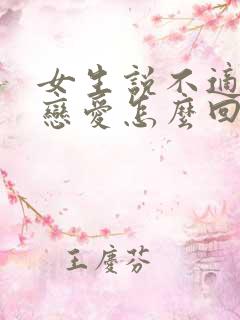 女生說不適
戀愛怎麼回
王慶芬